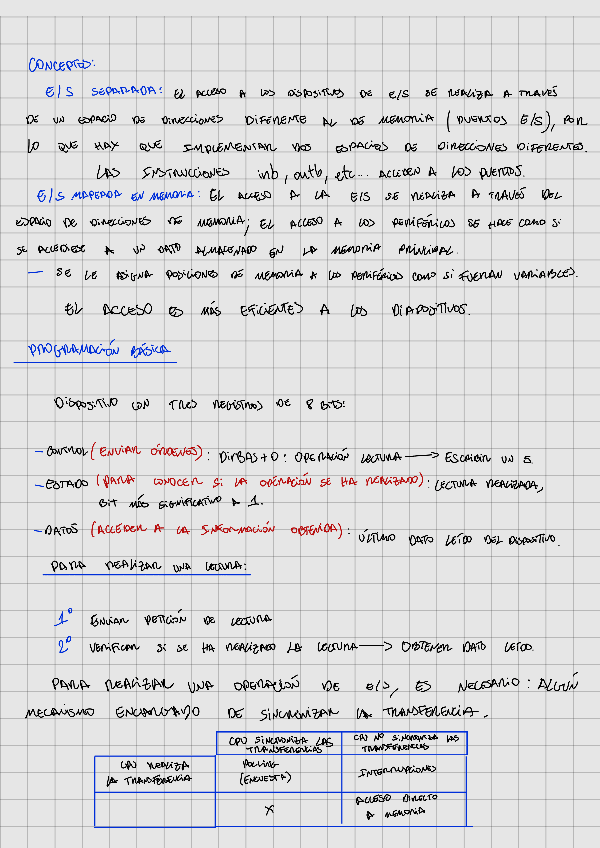 CONCEPTOS:
E/S SEPARADA: EL ACCESO A LOS DISPOSITIVOS DE E/S SE REALIZA A TRAVÉS
DE UN ESPACIO DE DIRECCIONES DIFERENTE AL DE MEMORIA (PUERTOS E/S), POR
LO QUE HAY QUE IMPLEMENTAR DOS ESPACIOS DE DIRECCIONES DIFERENTES.
LAS INSTRUCCIONES inb, outb, etc... ACCEDEN A LOS PUERTOS.
E/S MAPEADA EN MEMORIA: EL ACCESO A LA E/S SE REALIZA A TRAVÉS DEL
ESPACIO DE DIRECCIONES DE MEMORIA; EL ACCESO A LOS PERIFÉRICOS SE HACE COMO SI
SE ACCEDIESE A UN DATO ALMACENADO EN LA MEMORIA PRINCIPAL.
— SE LE ASIGNA POSICIONES DE MEMORIA A LOS PERIFÉRICOS COMO SI FUERAN VARIABLES.
EL ACCESO ES MÁS EFICIENTES A LOS DIAPOSITIVOS.
PROGRAMACIÓN BÁSICA
DISPOSITIVO CON TRES REGISTROS DE 8 BITS:
- CONTROL (ENVIAR ÓRDENES): DIRBAS+0: OPERACIÓN LECTURA → ESCRIBIR UN 5.
- ESTADO (PARA CONOCER SI LA OPERACIÓN SE HA REALIZADO): LECTURA REALIZADA,
BIT MÁS SIGNIFICATIVO A 1.
- DATOS (ACCEDER A LA INFORMACIÓN OBTENIDA): ÚLTIMO DATO LEÍDO DEL DISPOSITIVO.
PARA REALIZAR UNA LECTURA:
1º ENVIAR PETICIÓN DE LECTURA
2º VERIFICAR SI SE HA REALIZADO LA LECTURA → OBTENER DATO LEÍDO.
PARA REALIZAR UNA OPERACIÓN DE E/S, ES NECESARIO: ALGÚN
MECANISMO ENCARGADO DE SINCRONIZAR LA TRANSFERENCIA.
CPU SINCRONIZA LAS TRANSFERENCIAS
CPU NO SINCRONIZA LAS TRANSFERENCIAS
CPU REALIZA LA TRANSFERENCIA
POLLING (ENCUESTA)
INTERRUPCIONES
X
ACCESO DIRECTO A MEMORIA